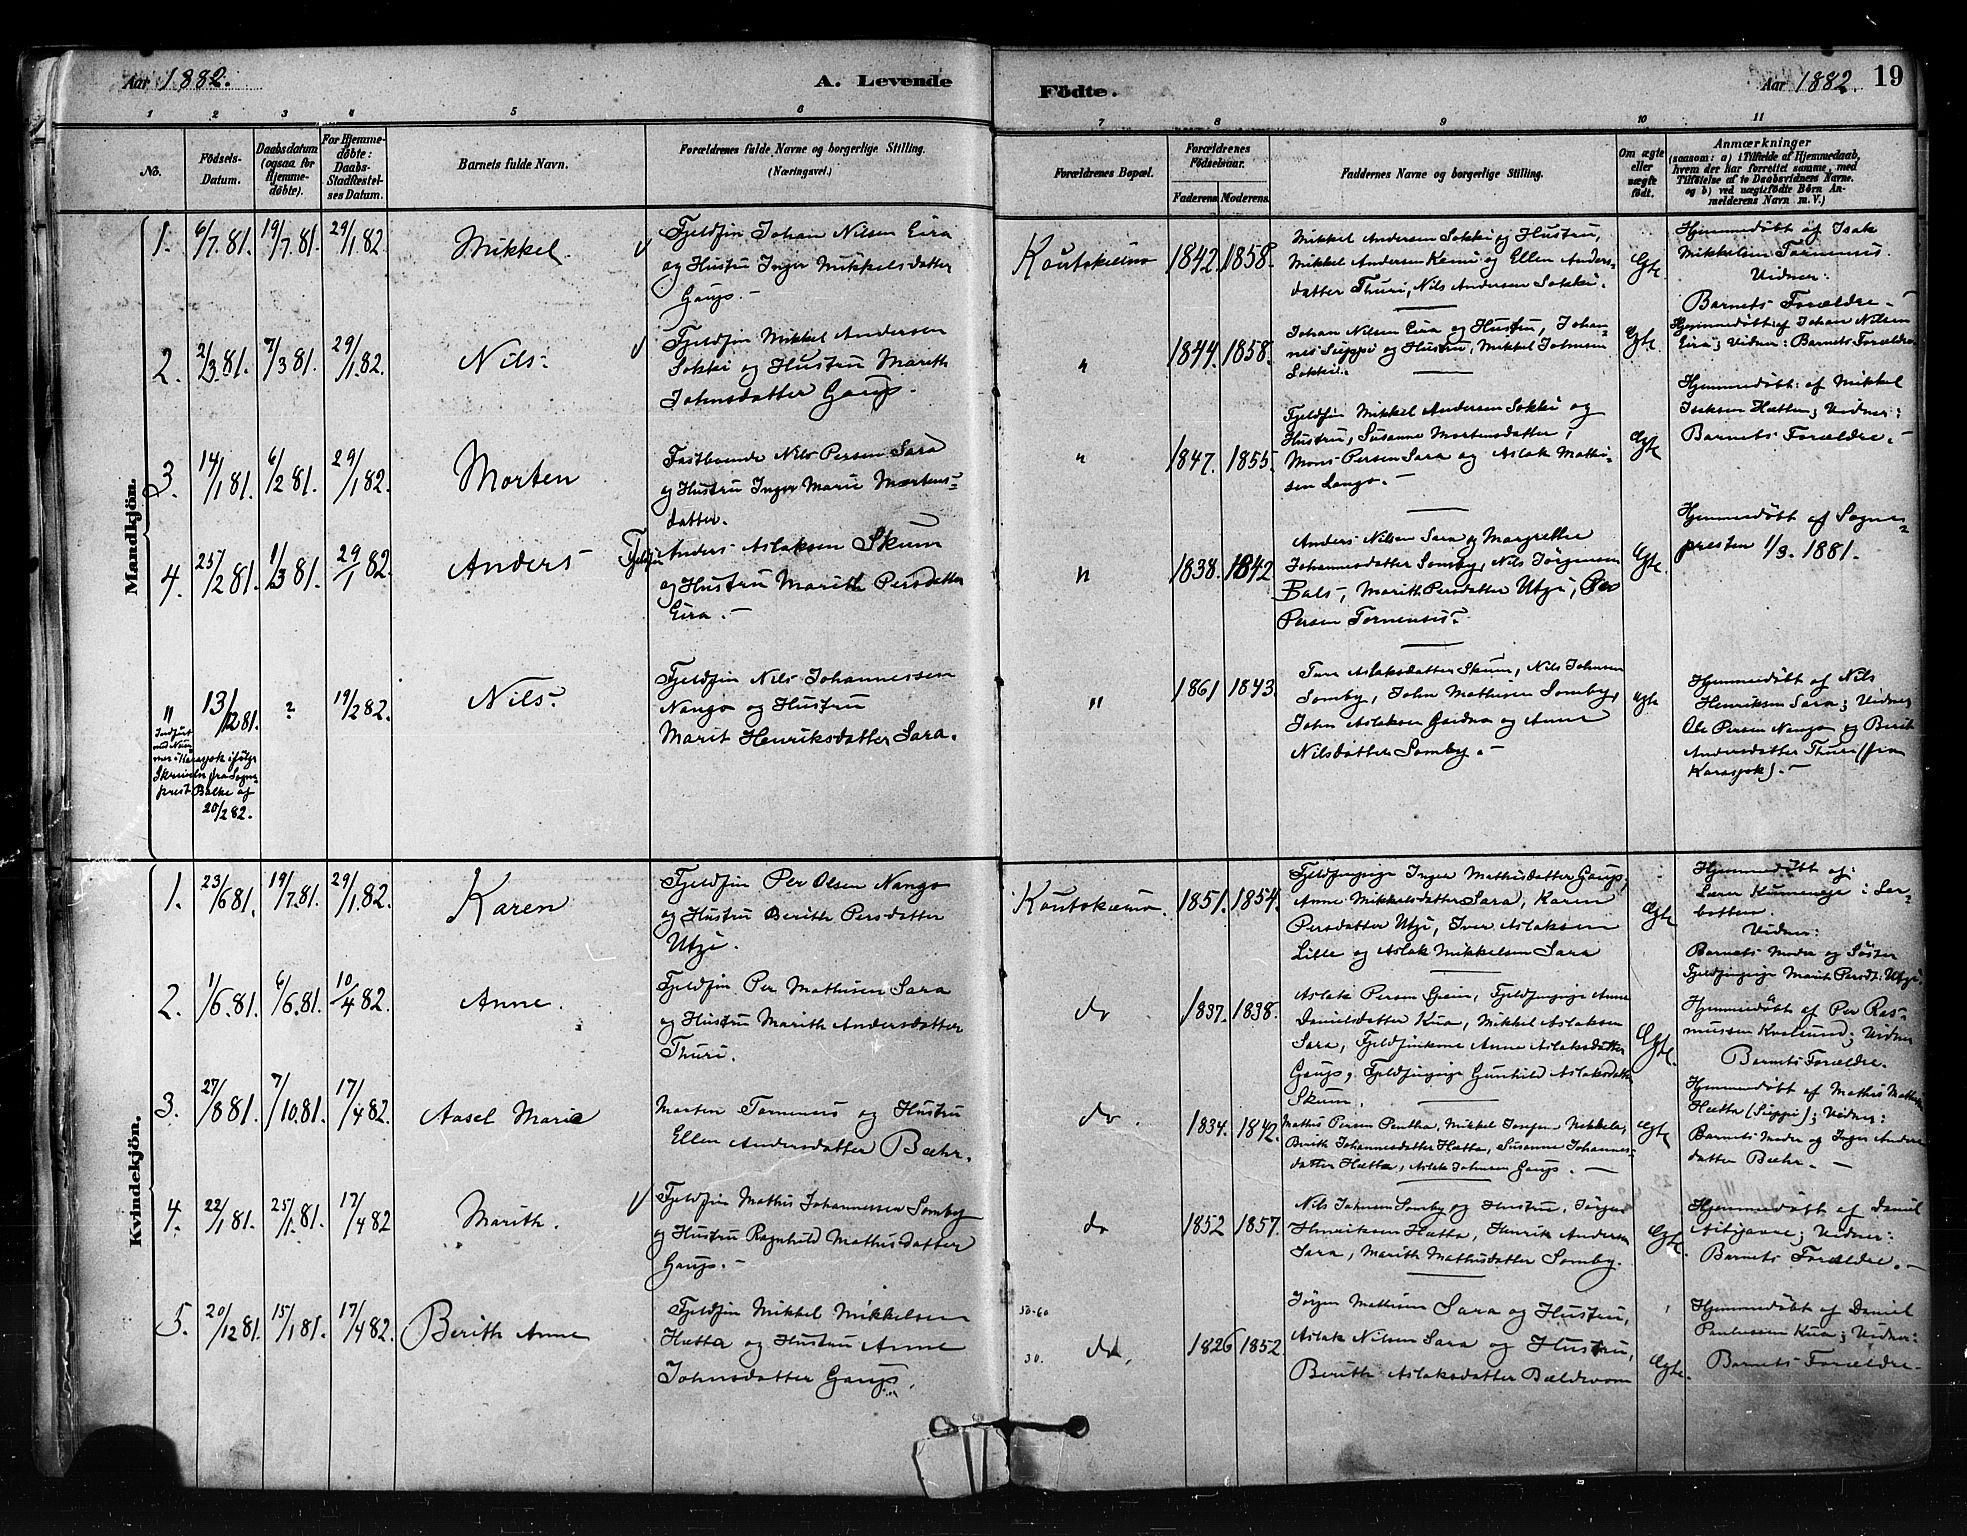 Aar 1882.
A. Levende
Födte.
Aar 1882.
19
1
2
3
4
5
6
7
8
9
10
11
No.
Födsels-
Datum.
Daabsdatum
(ogsaa for
Hjemme-
döbte).
For Hjemme-
döbte:
Daabs-
Stadfæstel-
ses Datum.
Barnets fulde Navn.
Forældrenes fulde Navne og borgerlige Stilling.
(Næringsvei.)
Forældrenes Bopæl.
Forældrenes
Födselsaar.
Faderens.
Moderens.
Faddernes Navne og borgerlige Stilling.
Om ægte
eller
uægte
født.
Anmærkninger
(saasom: a) i Tilfælde af Hjemmedaab,
hvem der har forrettet samme, med
Tilföielse af to Daabsvidners Navne,
og b) ved uægtefödte Börn An-
melderens Navn m. V.)
Mandkjön.
1.
6/7 81.
19/7 81.
29/1 82.
Mikkel.
Fjeldfin Johan Nilsen Eira
og Hustru Inger Mikkelsdatter
Gaup.-
Koutokeino
1842.
1858.
Mikkel Andersen Sokki og Hustru,
Mikkel Andersen Kemi og Ellen Anders-
datter Thuri, Nils Andersen Sokki.
Ægte
Hjemmedøbt af Isak
Mikkelsen Tornensis.
Vidner:
Barnets Forældre.-
2.
2/3 81.
7/3 81.
29/1 82.
Nils.
Fjeldfin Mikkel Andersen
Sokki og Hustru Marith
Johnsdatter Gaup.
"
1844.
1858.
Johan Nilsen Eira og Hustru, Johan-
nes Suppi og Hustru, Mikkel Johnsen
Sokki.
Ægte
Hjemmedøbt af Johan Nilsen
Eira; Vidner: Barnets Forældre
3.
14/1 81.
6/2 81.
29/1 82.
Morten
Fastboende Nils Persen Sara
og Hustru Inger Marie Mortens-
datter.
"
1847.
1855.
Fjeldfin Mikkel Andersen Sokki og
Hustru, Susanne Mortensdatter,
Mons Persen Sara og Aslak Mathi-
sen Lango.-
Ægte
Hjemmedøbt: af Mikkel
Isaksen Hætta; Vidner:
Barnets Forældre.-
4.
25/2 81.
1/3 81.
29/1 82.
Anders
Fjeldfin Anders Aslaksen Skum
og Hustru Marith Persdatter
Eira.-
"
1838.
1842
Anders Nilsen Sara og Margrethe
Johannesdatter Somby, Nils Jørgensen
Bals, Marith Persdatter Utsi, Per
Persen Tornensis.
Ægte
Hjemmedøbt af Sogne-
presten 1/3. 1881.
"
Indført
med Num-
mer i Karasjok ifølge
Skrivelse fra Sogne-
prest Balke af
20/2 82.
13/12 81.
?
19/2 82.
Nils.
Fjeldfin Nils Johannessen
Nango og Hustru
Marit Henriksdatter Sara.
"
1861
1843.
Aslaksdatter Skum, Nils Johnsen
Somby, John Mathisen Somby,
John Aslaksen Gaidno og Anne
Nilsdatter Somby.-
Ægte
Hjemmedøbt af Nils
Henriksen Sara; Vidner
Ole Persen Nango og Berit
Andersdatter Thuri (fra
Karasjok).-
Kvindekjön.
1.
23/6 81.
19/7 81.
29/1 82.
Karen
Fjeldfin Per Olsen Nango
og Hustru Berith Persdatter
Utsi.
Koutokeino.
1851.
1854.
Fjeldfinpige Inger Mathisdatter Gaup,
Anne Mikkelsdatter Sara, Karen
Persdatter Utsi, Iver Aslaksen
Lille og Aslak Mikkelsen Sara
Ægte
Hjemmedøbt af:
Lærer
Vidner:
Barnets Moder og Søster
Fjeldfinpige Marit Persdt: Utsi.
2.
1/6 81.
6/6 81.
10/4 82.
Anne.
Fjeldfin Per Mathisen Sara
og Hustru Marith Andersdatter
Thuri.
do
1837.
1838.
Aslak Persen Fjeldfinpige Anne
Danielsdatter Kua, Mikkel Aslaksen
Sara, Fjeldfinkone Anne Aslaksdatter
Gaup, Fjeldfinpige Gunhild Aslaksdatter
Skum.
Ægte
Hjemmedøbt af Per Ras-
mussen Kvalsund; Vidner
Barnets Forældre.
3.
27/8 81.
7/10 81.
17/4 82.
Aasel Marie
Morten Tornensis og Hustru
Ellen Andersdatter Bæhr.
do.
1834.
1842.
Mathis Persen Pentha, Mikkel Josefsen Nikkela,
Berith Johannesdatter Hætta, Susanne Johannes-
datter Hætta, Aslak Johnsen Gaup.-
Ægte
Hjemmedøbt af Mathis Mathis
Hætta (Suppi); Vidner:
Barnets Moder og Inger Anders
datter Bæhr.-
4.
22/1 81.
25/1 81.
17/4 82
Marith.
Fjeldfin Mathis Johannessen Somby
og Hustru Ragnhild Mathisdatter
Gaup.-
do
1852
1857.
Nils Johnsen Somby og Hustru, Jørgen
Henriksen Hætta, Henrik Andersen
Sara, Marith Mathisdatter Somby.
Ægte.
Hjemmedøbt af Daniel
Vidner:
Barnets Forældre.-
5.
20/12 81.
15/1 81.
17/4 82.
Berith Anne
Fjeldfin Mikkel Mikkelsen
Hætta og Hustru Anne
Johnsdatter Gaup.
50-60
30.
do.
1826
1852.
Jørgen Mathisen Sara og Hustru,
Aslak Nilsen Sara og Hustru,
Berith Aslaksdatter Bældovom
Ægte.
Hjemmedøbt af Daniel
Paulussen Kua; Vidner:
Barnets Forældre